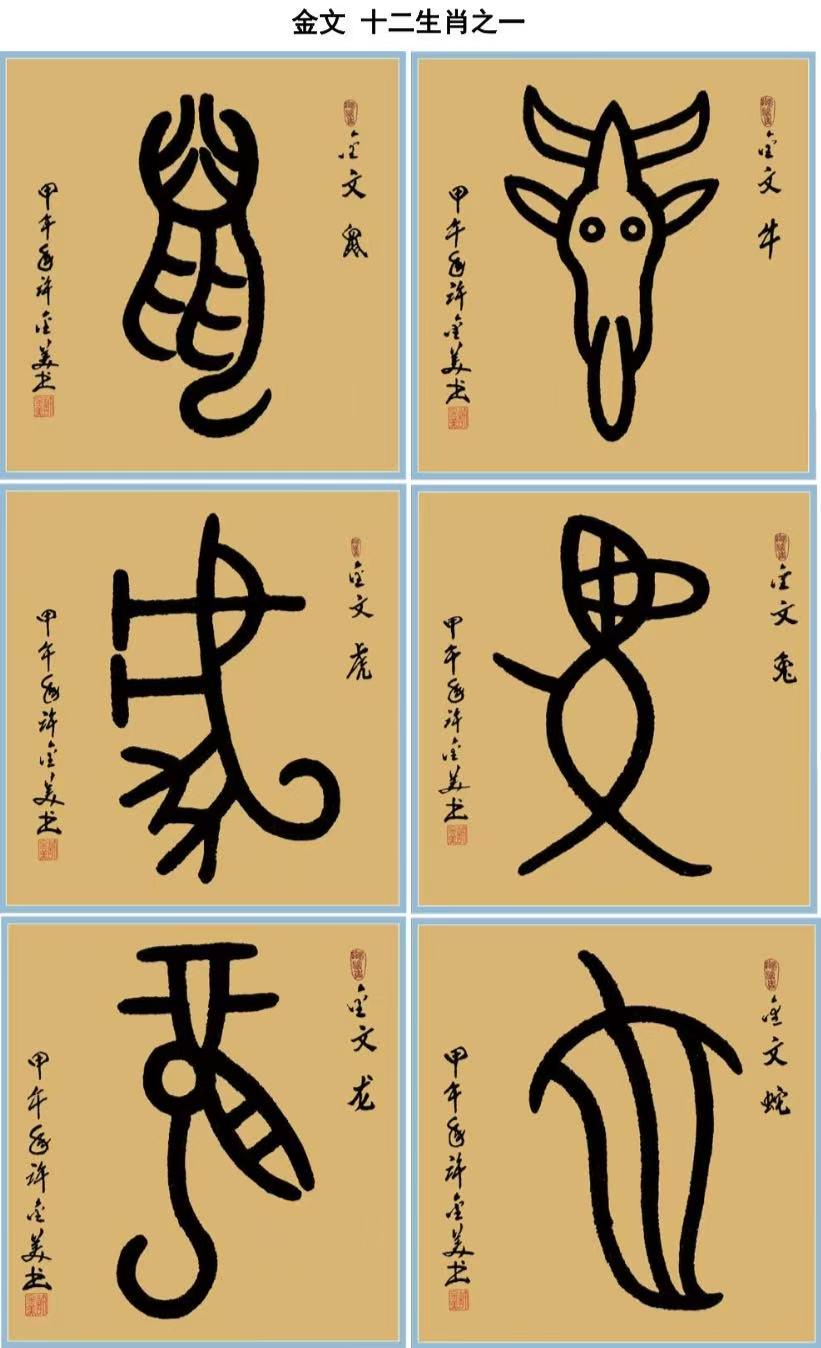 金文 十二生肖之一
金文 鼠
甲午年许金美书
金文 牛
甲午年许金美书
金文 虎
甲午年许金美书
金文 兔
甲午年许金美书
金文 龙
甲午年许金美书
金文 蛇
甲午年许金美书